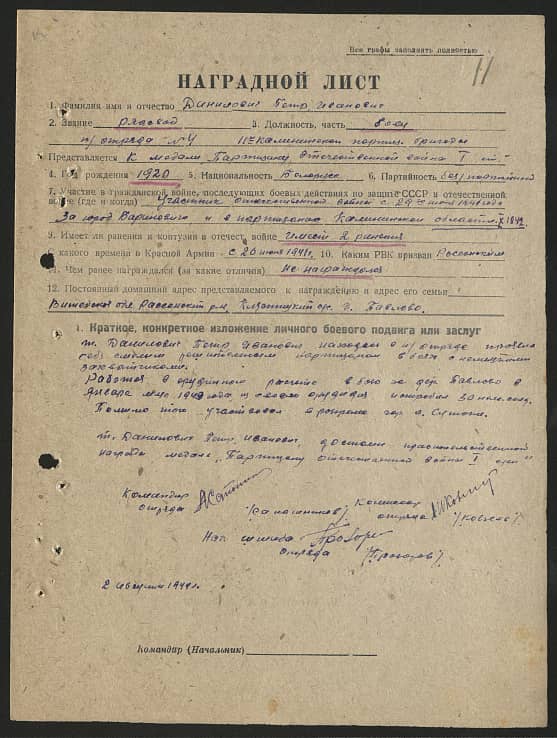 Все графы заполнять полностью
11
НАГРАДНОЙ ЛИСТ
1. Фамилия имя и отчество Данилович Петр Иванович
2. Звание рядовой 3. Должность, часть боец
п/отряда №4 11й Калининской партиз. бригады
Представляется к медали Партизану Отечественной войны I ст.
4. Год рождения 1920 5. Национальность Белорус 6. Партийность безпартийный
7. Участие в гражданской войне, последующих боевых действиях по защите СССР и отечественной
войне (где и когда) Участник отечественной войны с
За город и в партизанах Калининской области
9. Имеет ли ранения и контузии в отечест. войне имеет 2 ранения
С какого времени в Красной Армии с 26 июня 1941 г. 10. Каким РВК призван Россонским
11. Чем ранее награждался (за какие отличия) Не награждался
12. Постоянный домашний адрес представляемого к награждению и адрес его семьи
Витебская обл. Россонский р-н, д. Павлово.
1. Краткое, конкретное изложение личного боевого подвига или заслуг
т. Данилович Петр Иванович находясь в п/отряде проявил
себя смелым решительным партизаном в боях с немецкими
захватчиками.
Работая в орудийном расчете в бою за дер. Павлово в
Января м-ца 1943 года, из своего орудия истребил 30 нем. солд.
Помимо того участвовал в разгроме гар. в
т. Данилович Петр Иванович, достоин правительственной
награды медали "Партизану отечественной войны I степ"
Командир
отряда
Комиссар
отряда /Ковалев/
Нач штаба
отряда /Прохоров/
2 1944 г.
Командир (Начальник)